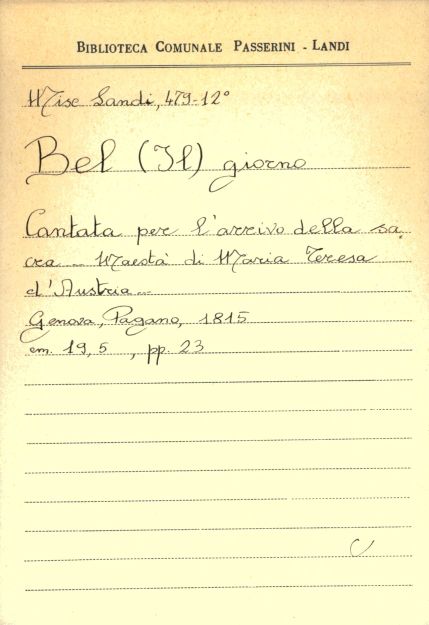 BIBLIOTECA COMUNALE PASSERINI - LANDI
Misc Landi, 479-12°
Bel (Il) giorno
Cantata per l'arrivo della sa,
cra ... Maestà di Maria Teresa
d'Austria ...
Genova, Pagano, 1815
cm. 19,5 , pp. 23